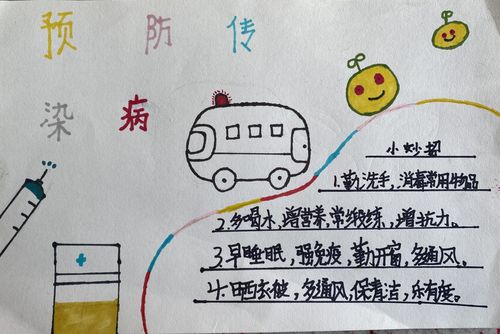 预防传
染病
小妙招
1.勤洗手,消毒常用物品
2.多喝水,增营养,常锻练,增抗力。
3.早睡眠,强免疫,勤开窗,多通风。
4.晒衣被,多通风,保清洁,乐有度。